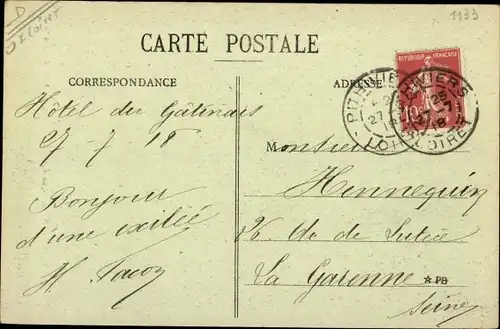 D
LOIRET
1133
CARTE POSTALE
CORRESPONDANCE
ADRESSE
RÉPUBLIQUE FRANÇAISE
10
PITHIVIERS
LOIRET
Hôtel du Gâtinais
27 7 18
Bonjour
d'une exilée
H
Monsieur
Hennequin
26 de Lutèce
La Garenne
PB
Seine